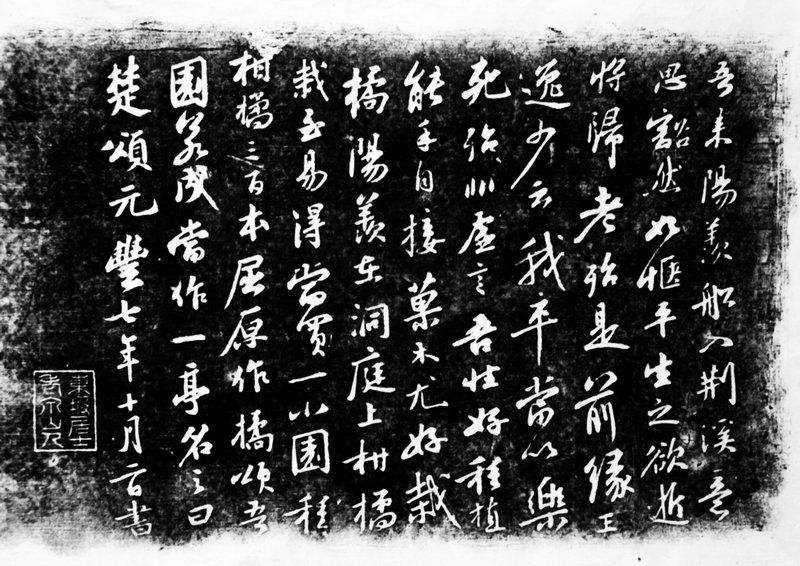 吾來陽羨船入荆溪意
思豁然如愜平生之欲逝
將歸老殆是前緣王
逸少云我卒當以樂
死殆非虛言吾性好種植
能手自接菓木尤好栽
橘陽羨在洞庭上柑橘
栽至易得當買一小園種
柑橘三百本屈原作橘頌吾
園若成當作一亭名之曰
楚頌元豐七年十月二日書
東坡居士
老泉山人